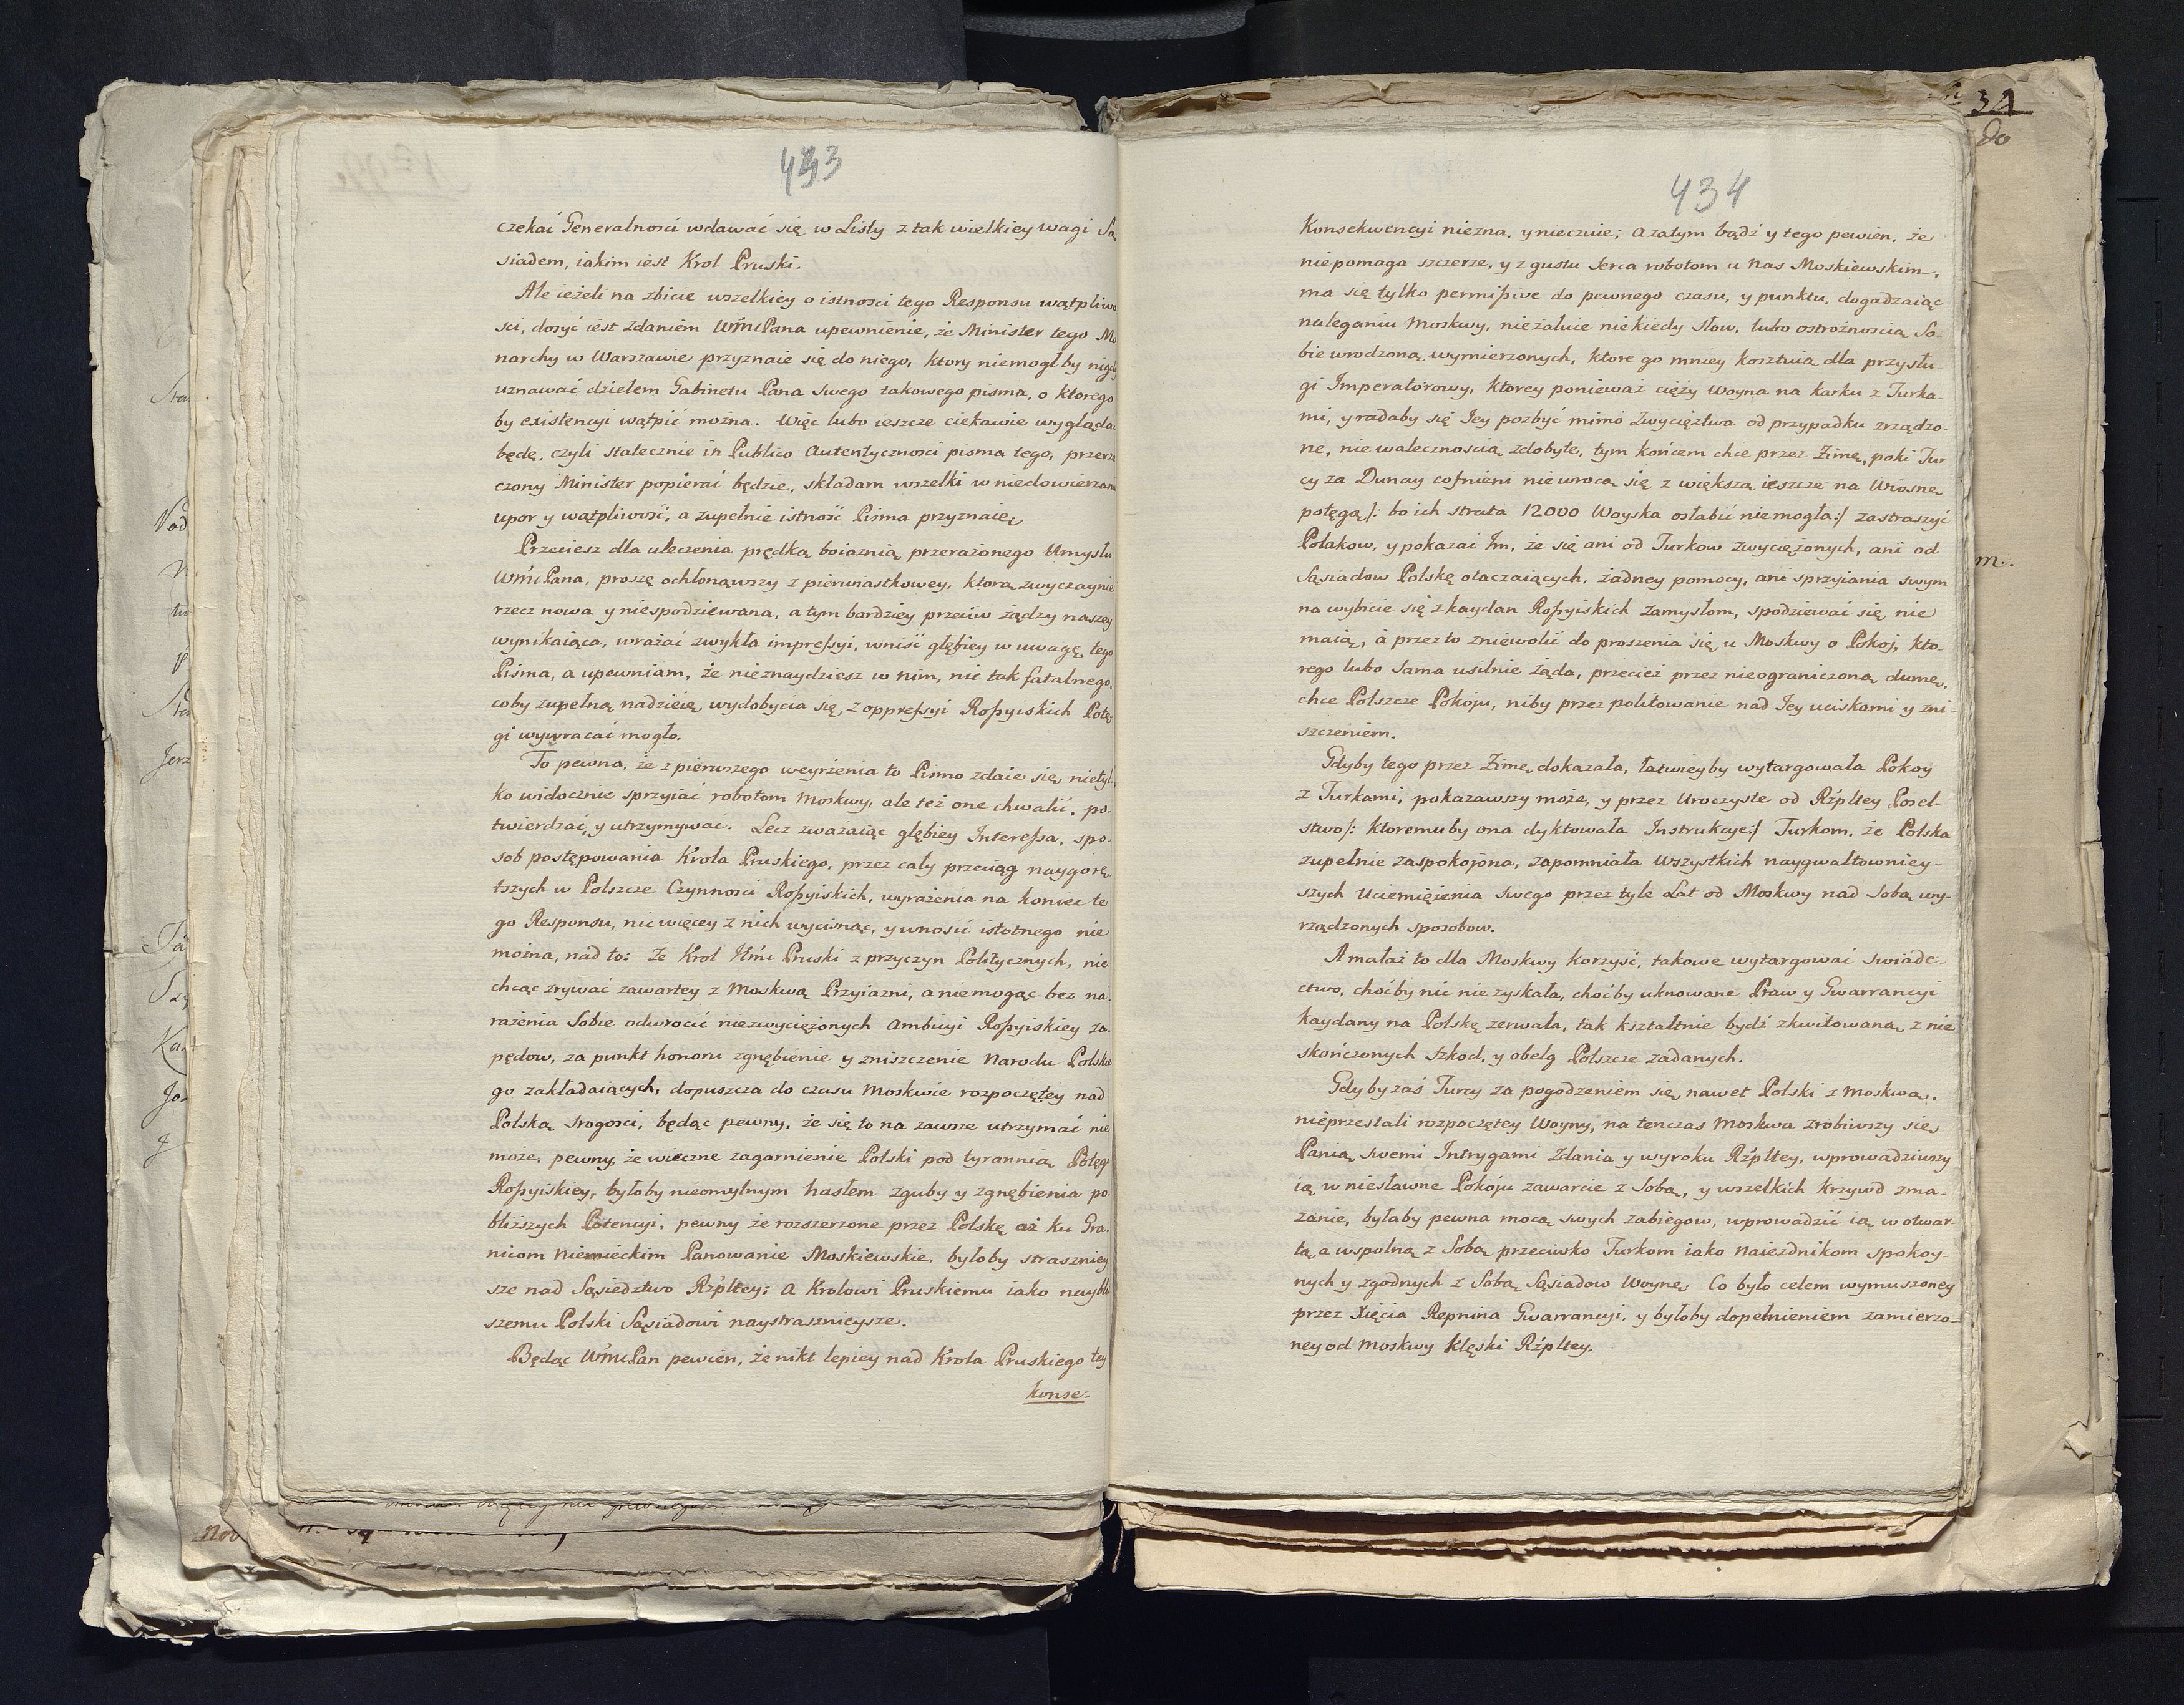 433
czekać Generalnosci wdawać się w Listy z tak wielkiey wagi Są
siadem, iakim iest Krol Pruski.
Ale ieżeli na zbicie wszelkiey o istnosci tego Responsu wątpliwo
sci, dosyć iest zdaniem WMcPana upewnienie, że Minister tego Mo
narchy w Warszawie przyznaie się do niego, ktory niemogłby nigdy
uznawać dziełem Gabinetu Pana swego takowego pisma, o ktorego
by existencyi wątpić można. Więc lubo ieszcze ciekawie wyglądać
będę, czyli statecznie in Publico Autentycznosci pisma tego, przerze
czony Minister popierać będzie, składam wszelki w niedowierzaniu
upor y wątpliwość, a zupełnie istność Pisma przyznaię.
Przeciesz dla uleczenia prędką boiaznią przerażonego Umysłu
WMcPana, proszę ochłonąwszy z pierwiastkowey, ktorą zwyczaynie
rzecz nowa y niespodziewana, a tym bardziey przeciw żądzy naszey
wynikaiąca, wrażać zwykła impressyi, wniść głębiey w uwagę tego
Pisma, a upewniam, że nieznaydziesz w nim, nic tak fatalnego,
coby zupełną nadzieię wydobycia się z oppressyi Rossyiskich Potę
gi wywracać mogło.
To pewna, że z pierwszego weyrżenia to Pismo zdaie się nietyl
ko widocznie sprzyiać robotom Moskwy, ale też one chwalić, po-
twierdzać, y utrzymywać. Lecz zważaiąc głębiey Interessa, spo-
sob postępowania Krola Pruskiego, przez cały przeciąg naygorę
tszych w Polszcze Czynnosci Rossyiskich, wyrażenia na koniec te
go Responsu, nic więcey z nich wycisnąć, y wnosić istotnego nie
można, nad to: Że Krol JMć Pruski z przyczyn Politycznych, nie
chcąc zrywać zawartey z Moskwą Przyiazni, a niemogąc bez na-
rażenia Sobie odwrocić niezwyciężonych Ambicyi Rossyiskiey za-
pędow, za punkt honoru zgnębienie y zniszczenie Narodu Polskie
go zakładaiących, dopuszcza do czasu Moskwie rozpoczętey nad
Polską srogosci, będąc pewny, że się to na zawsze utrzymać nie
może, pewny, że wieczne zagarnienie Polski pod tyrannią Potęgi
Rossyiskiey, byłoby nieomylnym hasłem zguby y zgnębienia po-
bliższych Potencyi, pewny że rozszerzone przez Polskę aż ku Gra-
nicom Niemieckim Panowanie Moskiewskie, byłoby straszniey
sze nad Sąsiedztwo Rzpltey; a Krolowi Pruskiemu iako naybli
szemu Polski Sąsiadowi naystrasznieysze.
Będąc WMcPan pewien, że nikt lepiey nad Krola Pruskiego tey
konse-
434
Konsekwencyi niezna, y nieczuie; a zatym bądź y tego pewien, że
niepomaga szczerze, y z gustu serca robotom u nas Moskiewskim,
ma się tylko permissive do pewnego czasu, y punktu, dogadzaiąc
naleganiu Moskwy, nieżałuie niekiedy słow, lubo ostrożnoscią So-
bie wrodzoną wymierzonych, ktore go mniey kosztuią dla przysłu-
gi Imperatorowy, ktorey ponieważ cięży Woyna na karku z Turka-
mi, y radaby się Jey pozbyć mimo Zwycięztwa od przypadku zrządzo-
ne, nie walecznoscią zdobyte, tym końcem chce przez Zimę, poki Tur
cy za Dunay cofnieni niewrocą się z większą ieszcze na Wiosnę
potęgą /: bo ich strata 12000 Woyska osłabić niemogła :/ zastraszyć
Polakow, y pokazać Im, że się ani od Turkow zwyciężonych, ani od
Sąsiadow Polskę otaczaiących, żadney pomocy, ani sprzyiania swym
na wybicie się z kaydan Rossyiskich zamysłom, spodziewać się nie
maią, a przez to zniewolić do proszenia się u Moskwy o Pokoj, kto-
rego lubo sama usilnie żąda, przecież przez nieograniczoną dumę,
chce Polszcze Pokoju, niby przez politowanie nad Jey uciskami y zni-
szczeniem.
Gdyby tego przez Zimę dokazała, łatwieyby wytargowała Pokoy
z Turkami, pokazawszy może, y przez Uroczyste od Rzpltey Posel-
stwo /: ktoremuby ona dyktowała Instrukcye :/ Turkom, że Polska
zupełnie zaspokojona, zapomniała Wszystkich naygwałtowniey-
szych Uciemiężenia swego przez tyle Lat od Moskwy nad Sobą wy-
rządzonych sposobow.
A małaż to dla Moskwy korzyść, takowe wytargować swiade-
ctwo, choćby nic nie zyskała, choćby uknowane Praw y Gwarrancyi
kaydany na Polskę zerwała, tak kształtnie bydź zkwitowaną z nie
skończonych szkod, y obelg Polszcze zadanych.
Gdyby zaś Turcy za pogodzeniem się nawet Polski z Moskwą,
nieprzestali rozpoczętey Woyny, na tenczas Moskwa zrobiwszy się
Panią swemi Intrygami Zdania y wyroku Rzpltey, wprowadziwszy
ią w niesławne Pokoju zawarcie z Sobą, y wszelkich krzywd zma-
zanie, byłaby pewna mocą swych zabiegow, wprowadzić ią w otwar-
tą a wspolną z Sobą przeciwko Turkom iako naiezdnikom spokoy-
nych y zgodnych z Sobą Sąsiadow Woynę. Co było celem wymuszoney
przez Xięcia Repnina Gwarrancyi, y byłoby dopełnieniem zamierzo-
ney od Moskwy klęski Rzpltey.